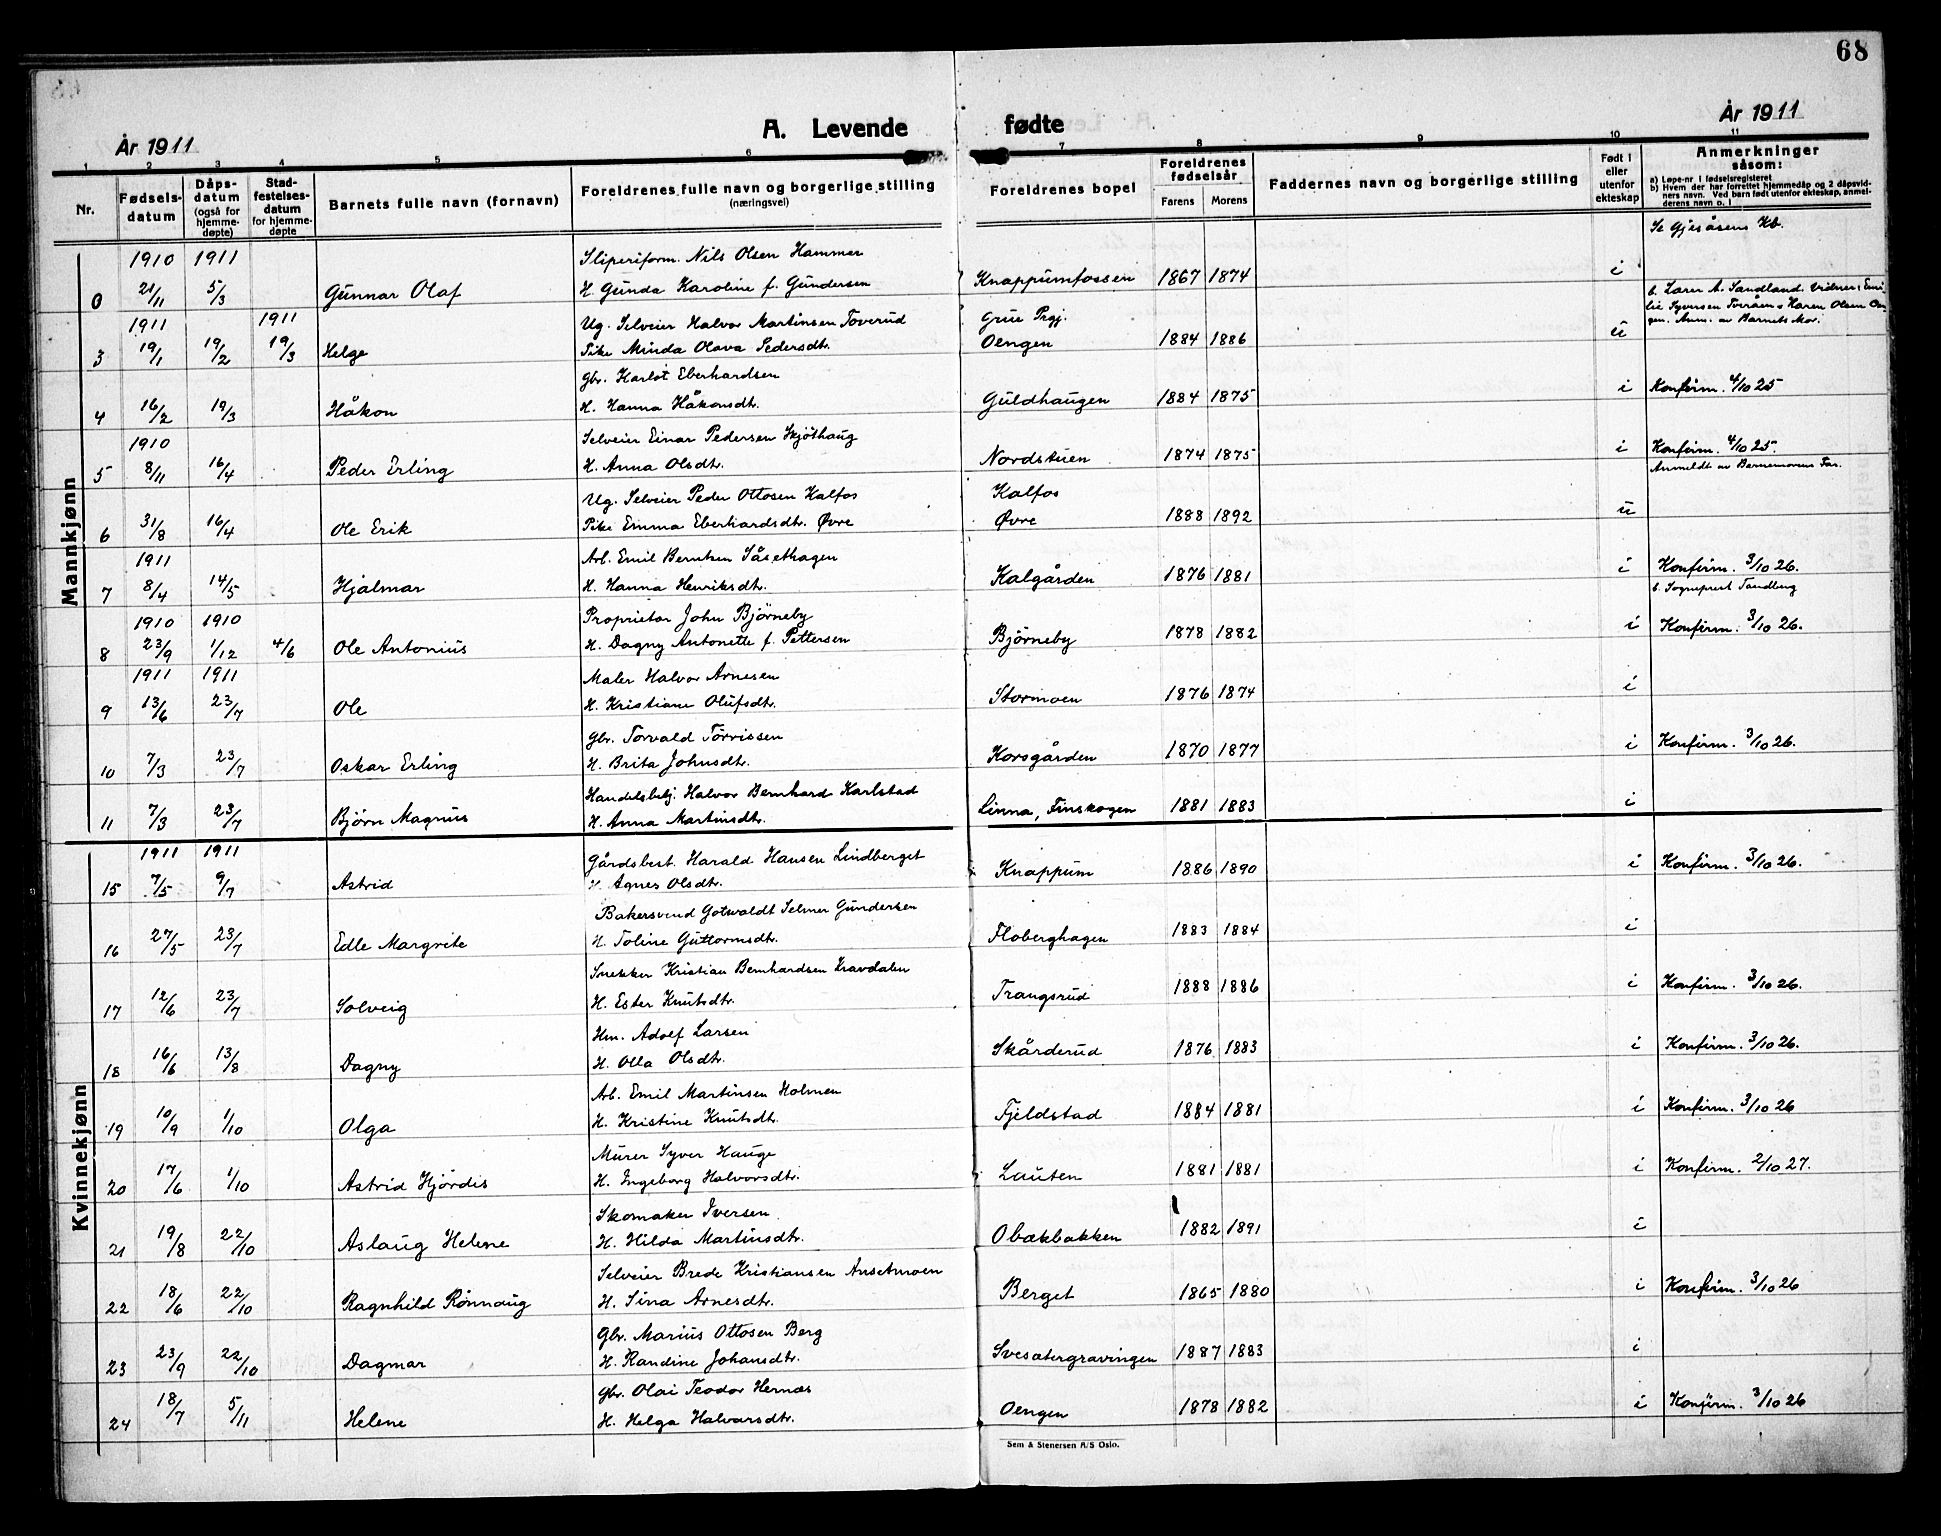 68
År 1911
A. Levende fødte
År 1911
1 2 3 4 5 6 7 8 9 10 11
Nr. Fødsels-datum Dåps-datum (også for hjemme-døpte) Stad-festelses-datum for hjemme-døpte Barnets fulle navn (fornavn) Foreldrenes fulle navn og borgerlige stilling (næringsvei) Foreldrenes bopel Foreldrenes fødselsår Farens Morens Faddernes navn og borgerlige stilling Født i eller utenfor ekteskap Anmerkninger såsom:
a) Løpe-nr i fødselsregisteret
b) Hvem der har forrettet hjemmedåp og 2 dåpsvid-
ners navn. Ved barn født utenfor ekteskap, anmel-
derens navn o. l
Mannkjønn
1910 1911 Sliperiform. Nils Olsen Hammer Se Gjesåsens Kb.
0 21/11 5/3 Gunnar Olaf H. Gunda Karoline f. Gundersen Knappumfossen 1867 1874 i
1911 1911 Ug. Selveier Halvor Martinsen Toverud Grue Prgj. b. Lærer A. Sandland. Vidner: Emi-
lie Syversen Torråen, Karen Olsen Oen-
gen. Anm. av Barnets Mor.
3 19/1 19/2 19/3 Helge Pike Minda Olava Pedersdtr. Oengen 1884 1886 u
Gbr. Harlot Eberhardsen
4 16/2 19/3 Håkon H. Hanna Håkonsdtr. Guldhaugen 1884 1875 i Konfirm. 4/10 25
1910 Selveier Einar Pedersen Skjøthaug
5 8/11 16/4 Peder Erling H. Anna Olsdtr. Nordstuen 1874 1875 i Konfirm. 4/10 25.
Ug. Selveier Peder Ottosen Kalfos Kalfos Anmeldt av Barnemorens Far.
6 31/8 16/4 Ole Erik Pike Emma Eberhardsdtr. Øvre Øvre 1888 1892 u
1911 Arb. Emil Berntsen Såsethagen
7 8/4 14/5 Hjalmar H. Hanna Henriksdtr. Kalgården 1876 1881 i Konfirm. 3/10 26.
1910 1910 Proprietær John Bjørneby b. Sogneprest Sandberg
8 23/9 1/12 4/6 Ole Antonius H. Dagny Antonette f. Pettersen Bjørneby 1878 1882 i Konfirm. 3/10 26.
1911 1911 Maler Halvor Arnesen
9 13/6 23/7 Ole H. Kristiane Olufsdtr. Stormoen 1876 1874 i
Gbr. Torvald Torrissen
10 7/3 23/7 Oskar Erling H. Brita Johnsdtr. Korsgården 1870 1877 i Konfirm. 3/10 26.
Handelsbetj. Halvor Bernhard Karlstad
11 7/3 23/7 Bjørn Magnus H. Anna Martinsdtr. Linna, Finskogen 1881 1883 i
Kvinnekjønn
1911 1911 Gårdsbest. Harald Hansen Lindberget
15 7/5 9/7 Astrid H. Agnes Olsdtr. Knappum 1886 1890 i Konfirm. 3/10 26.
Bakersvend Gotwaldt Selmer Gundersen
16 27/5 23/7 Edle Margrete H. Toline Guttormsdtr. Floberghagen 1883 1884 i
Snekker Kristian Bernhardsen Kravdalen
17 12/6 23/7 Solveig H. Ester Knutsdtr. Trangsrud 1888 1886 i Konfirm. 3/10 26.
Hm. Adolf Larsen
18 16/6 13/8 Dagny H. Olla Olsdtr. Skårderud 1876 1883 i Konfirm. 3/10 26.
Arb. Emil Martinsen Holmen
19 10/9 1/10 Olga H. Kristine Knutsdtr. Fjeldstad 1884 1881 i Konfirm. 3/10 26
Murer Syver Hauge
20 17/6 1/10 Astrid Hjørdis H. Ingeborg Halvorsdtr. Lauten 1881 1881 i Konfirm. 2/10 27.
Skomaker Iversen
21 19/8 22/10 Aslaug Helene H. Hilda Martinsdtr. Obakbakken 1882 1891 i
Selveier Brede Kristiansen Ansetmoen
22 18/6 22/10 Ragnhild Rønnaug H. Sina Arnesdtr. Berget 1865 1880 i Konfirm. 3/10 26
Gbr. Marius Ottosen Berg
23 23/9 22/10 Dagmar H. Randine Johansdtr. Svesætergravingen 1887 1883 i
Gbr. Olai Teodor Hernæs
24 18/7 5/11 Helene H. Helga Halvarsdtr. Oengen 1878 1882 i Konfirm. 3/10 26
Sem & Stenersen A/S Oslo.